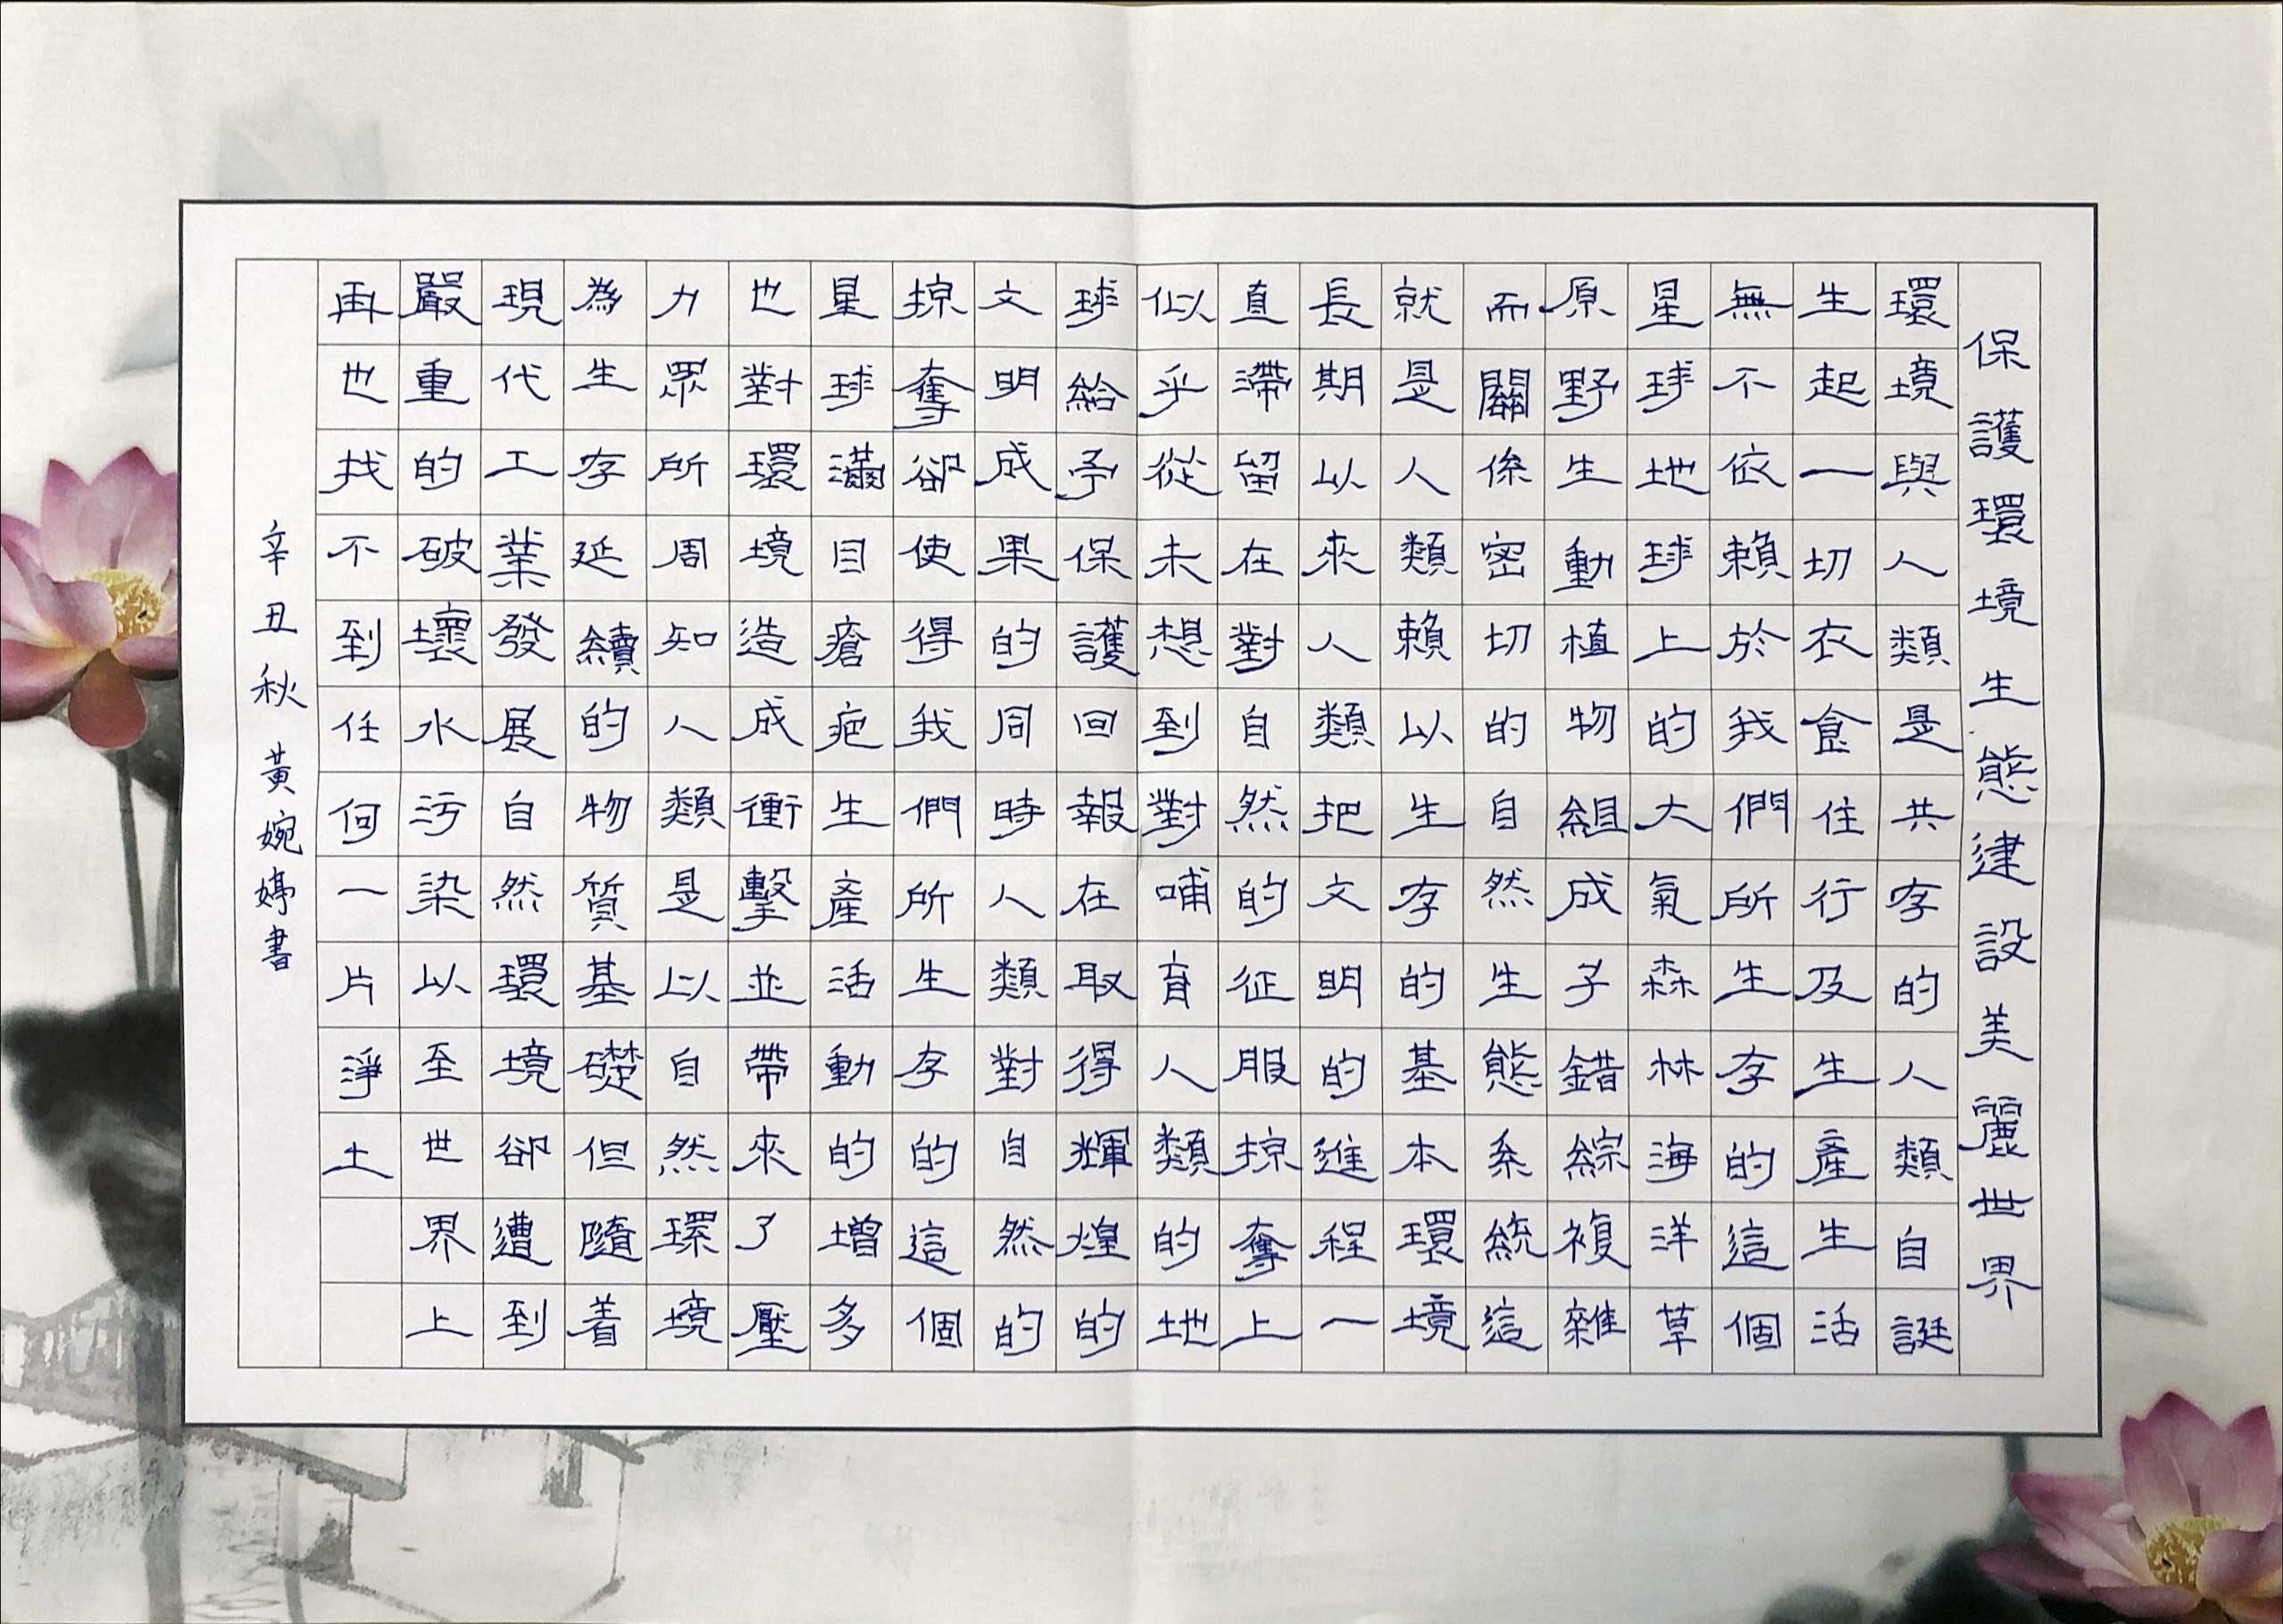 保護環境生態建設美麗世界
環境與人類是共存的人類自誕
生起一切衣食住行及生產生活
無不依賴於我們所生存的這個
星球地球上的大氣森林海洋草
原野生動植物組成子錯綜複雜
而關係密切的自然生態系統這
就是人類賴以生存的基本環境
長期以來人類把文明的進程一
直滯留在對自然的征服掠奪上
似乎從未想到對哺育人類的地
球給予保護回報在取得輝煌的
文明成果的同時人類對自然的
掠奪卻使得我們所生存的這個
星球滿目瘡疤生產活動的增多
也對環境造成衝擊並帶來了壓
力眾所周知人類是以自然環境
為生存延續的物質基礎但隨着
現代工業發展自然環境卻遭到
嚴重的破壞水污染以至世界上
再也找不到任何一片淨土
辛丑秋黃婉婷書